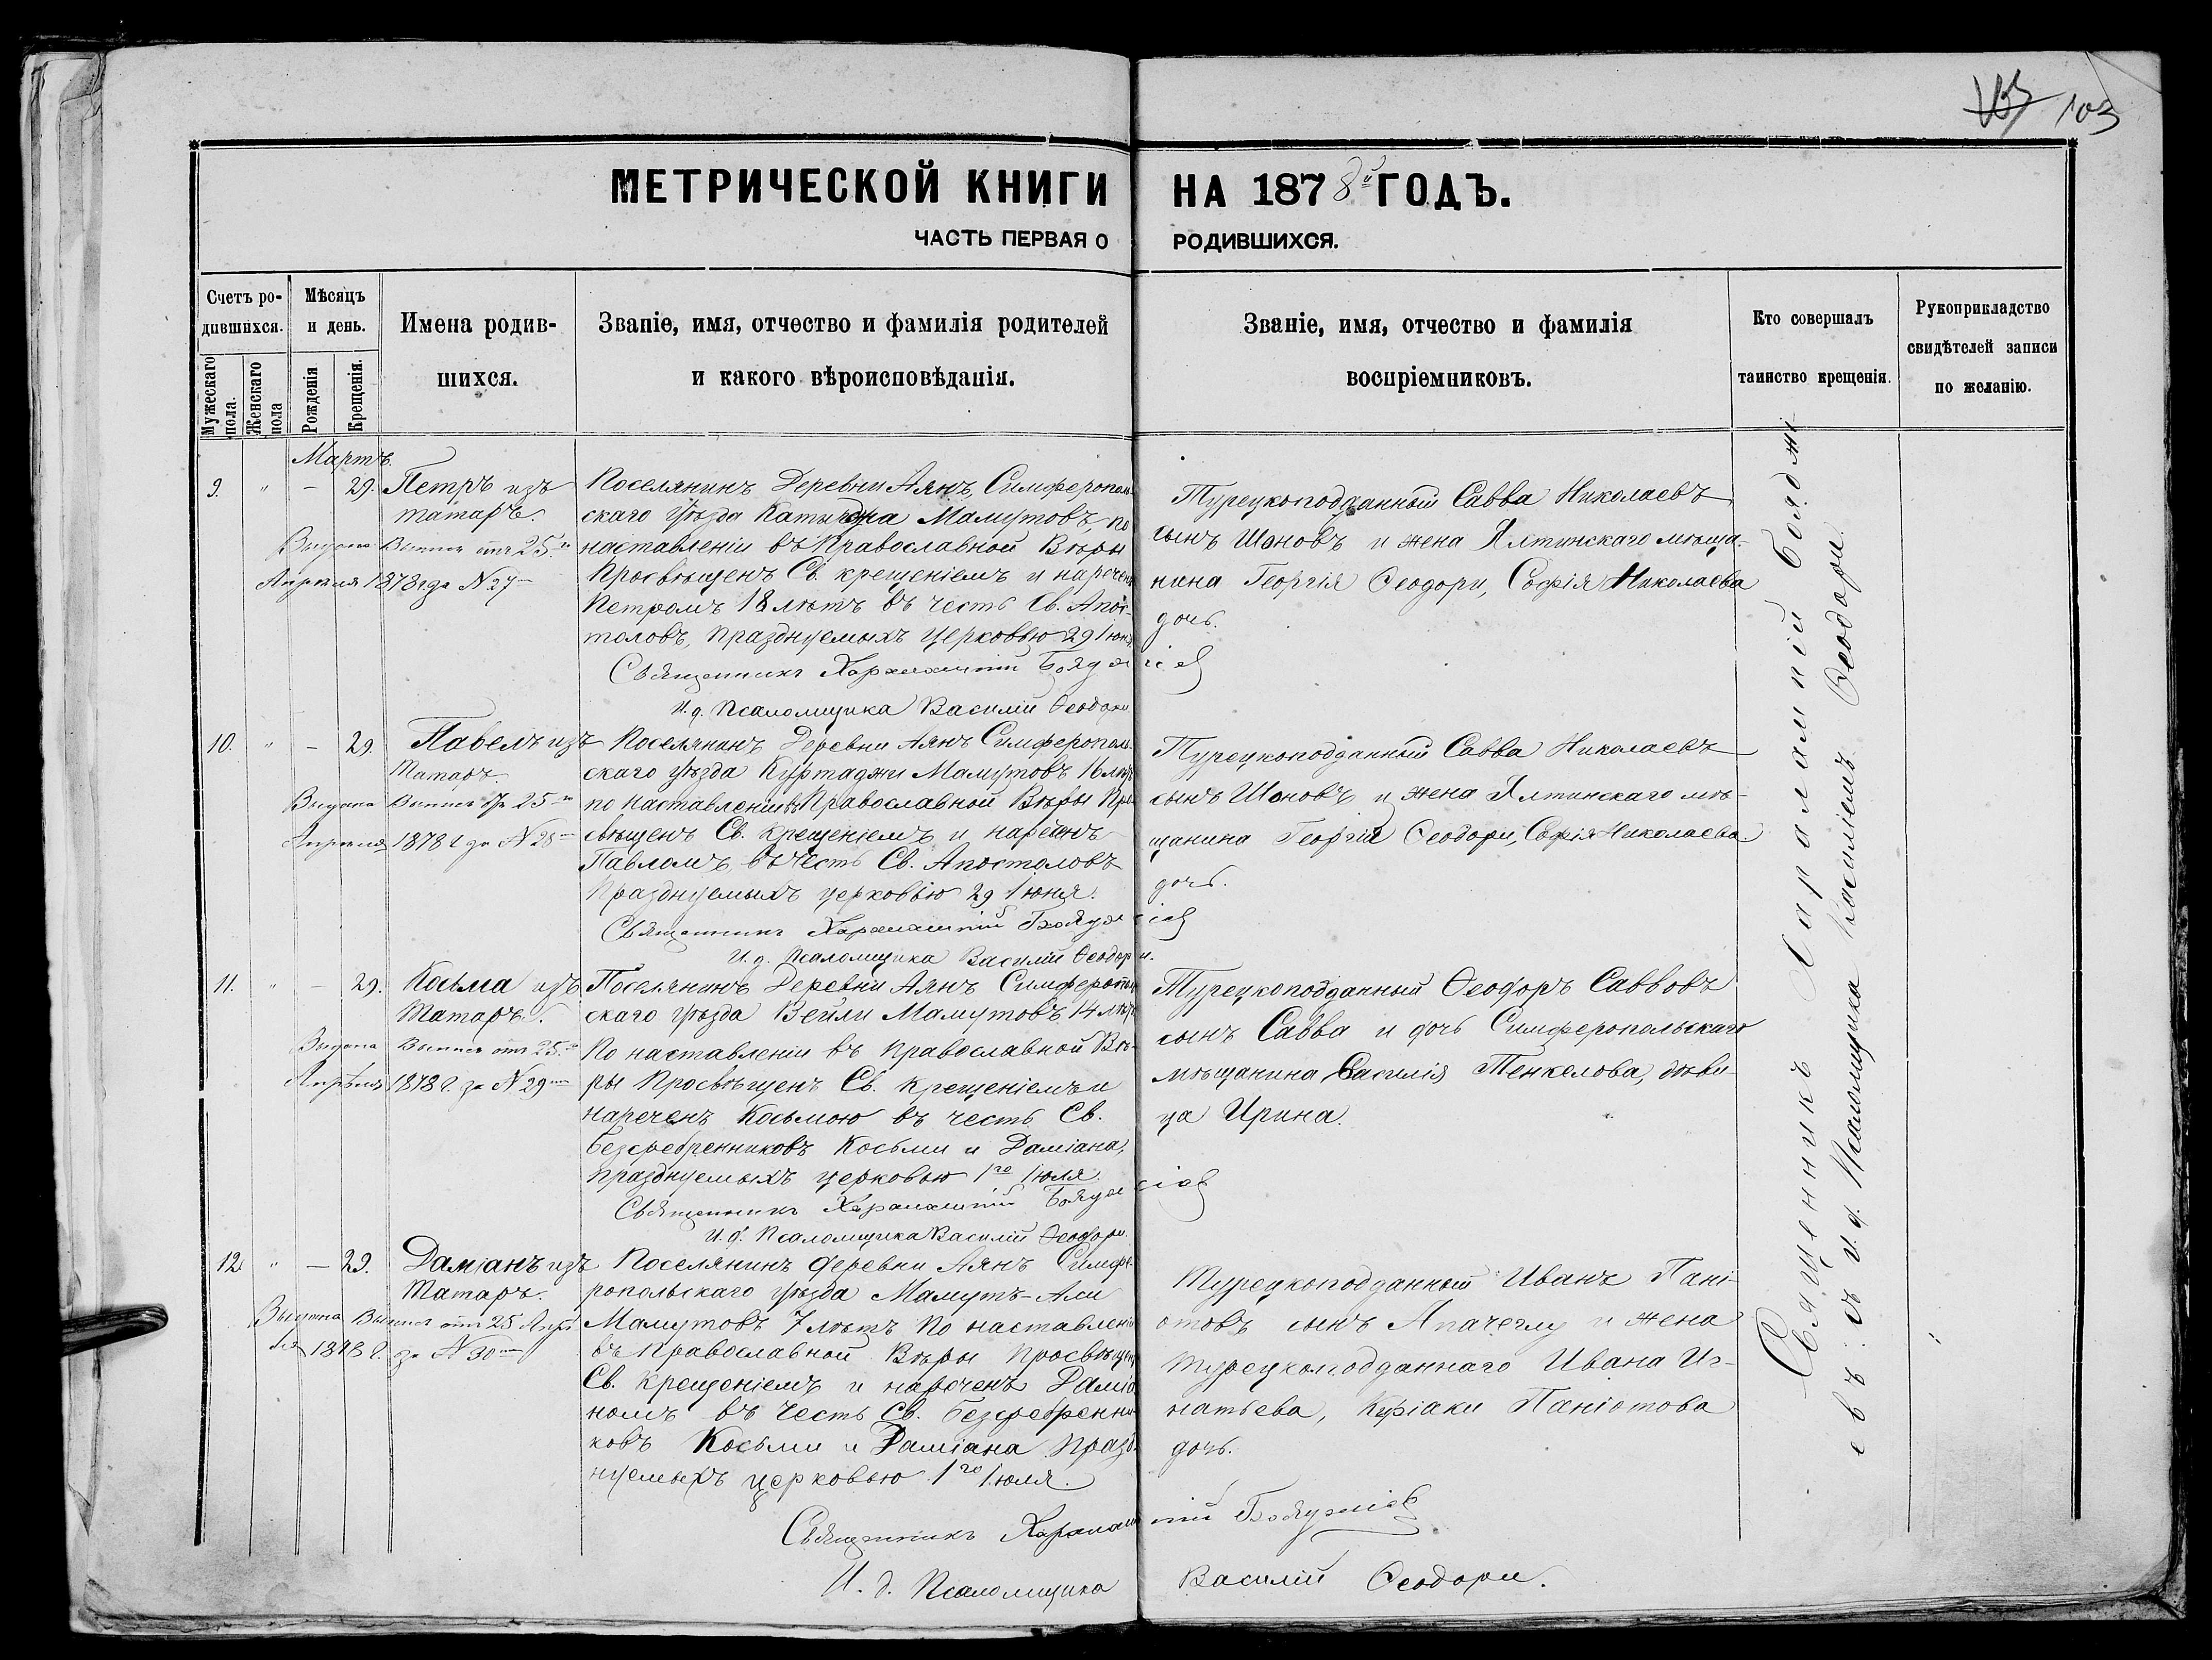 103
МЕТРИЧЕСКОЙ КНИГИ НА 1878й ГОДЪ.
ЧАСТЬ ПЕРВАЯ О РОДИВШИХСЯ.
Счетъ ро-
дившихся.
Мужескаго пола.
Женскаго пола
Мѣсяцъ
и день.
Рожденія
Крещенія.
Имена родив-
шихся.
Званіе, имя, отчество и фамилія родителей
и какого вѣроисповѣданія.
Званіе, имя, отчество и фамилія
воспріемниковъ.
Кто совершалъ
таинство крещенія.
Рукоприкладство
свидѣтелей записи
по желанію.
Мартъ.
9. " — 29. Петръ изъ
татаръ.
Выдана Выпись отъ 25го
Апрѣля 1878 года № 27
Поселянинъ Деревни Аянъ, Симферополь-
скаго уѣзда Мамутовъ, по
наставленіи въ Православной Вѣры
Просвѣщенъ Св. крещеніемъ и нареченъ
Петромъ 18 лѣтъ въ честь Св. Апос-
толовъ, празднуемыхъ церковью 29 Іюня
Священникъ Харалампій Бояджіевъ
И. д. Псаломщика Василій Ѳеодори
Турецкоподданный Савва Николаевъ
сынъ Шоновъ и жена Ялтинскаго мѣща-
нина Георгія Ѳеодори, Софія Николаева
дочь.
10. " — 29. Павелъ изъ
Татаръ.
Выдана Выпись отъ 25го
Апрѣля 1878 г. за № 28
Поселянинъ Деревни Аянъ Симферополь-
скаго уѣзда Куртаджи Мамутовъ 16 лѣтъ
по наставленіи въ Православной Вѣры Про-
свѣщенъ Св. крещеніемъ и нареченъ
Павломъ, въ честь Св. Апостоловъ
Празднуемыхъ церковію 29 Іюня.
Священникъ Харалампій Бояджіевъ
И. д. Псаломщика Василій Ѳеодори.
Турецкоподданный Савва Николаевъ
сынъ Шоновъ и жена Ялтинскаго мѣ-
щанина Георгія Ѳеодори, Софія Николаева
дочь.
11. " — 29. Косьма изъ
Татаръ.
Выдана Выпись отъ 25го
Апрѣля 1878 г. за № 29
Поселянинъ Деревни Аянъ Симферополь-
скаго уѣзда Вейли Мамутовъ 14 лѣтъ
По наставленіи въ Православной Вѣ-
ры Просвѣщенъ Св. Крещеніемъ и
нареченъ Косьмою въ честь Св.
Безсребренниковъ Косьми и Даміана,
празднуемыхъ церковью 1го Іюля.
Священникъ Харалампій Бояджіевъ
И. д. Псаломщика Василій Ѳеодори
Турецкоподданный Ѳеодоръ Саввовъ
сынъ Савва и дочь Симферопольскаго
мѣщанина Василія Тенкелова, дѣви-
ца Ирина.
12. " — 29. Даміанъ изъ
Татаръ.
Выдана Выпись отъ 25 Апрѣ-
ля 1878 г. за № 30
Поселянинъ деревни Аянъ Симфе-
ропольскаго уѣзда Мамутъ-Али
Мамутовъ 7 лѣтъ По наставленіи
въ Православной Вѣры Просвѣщенъ
Св. Крещеніемъ и нареченъ Даміа-
номъ въ честь Св. Безсребренни-
ковъ Косьми и Даміана празд-
нуемыхъ церковью 1го Іюля.
Турецкоподданный Иванъ Пані-
отовъ сынъ Апачеглу и жена
турецкоподданнаго Ивана Иг-
натьева, Киріаки Паніотова
дочь.
Священникъ Харалампій Бояджіевъ
И. д. Псаломщика Василій Ѳеодори.
Священникъ Харалампій Бояджі
евъ съ И. д. Псаломщика Василіемъ Ѳеодори.